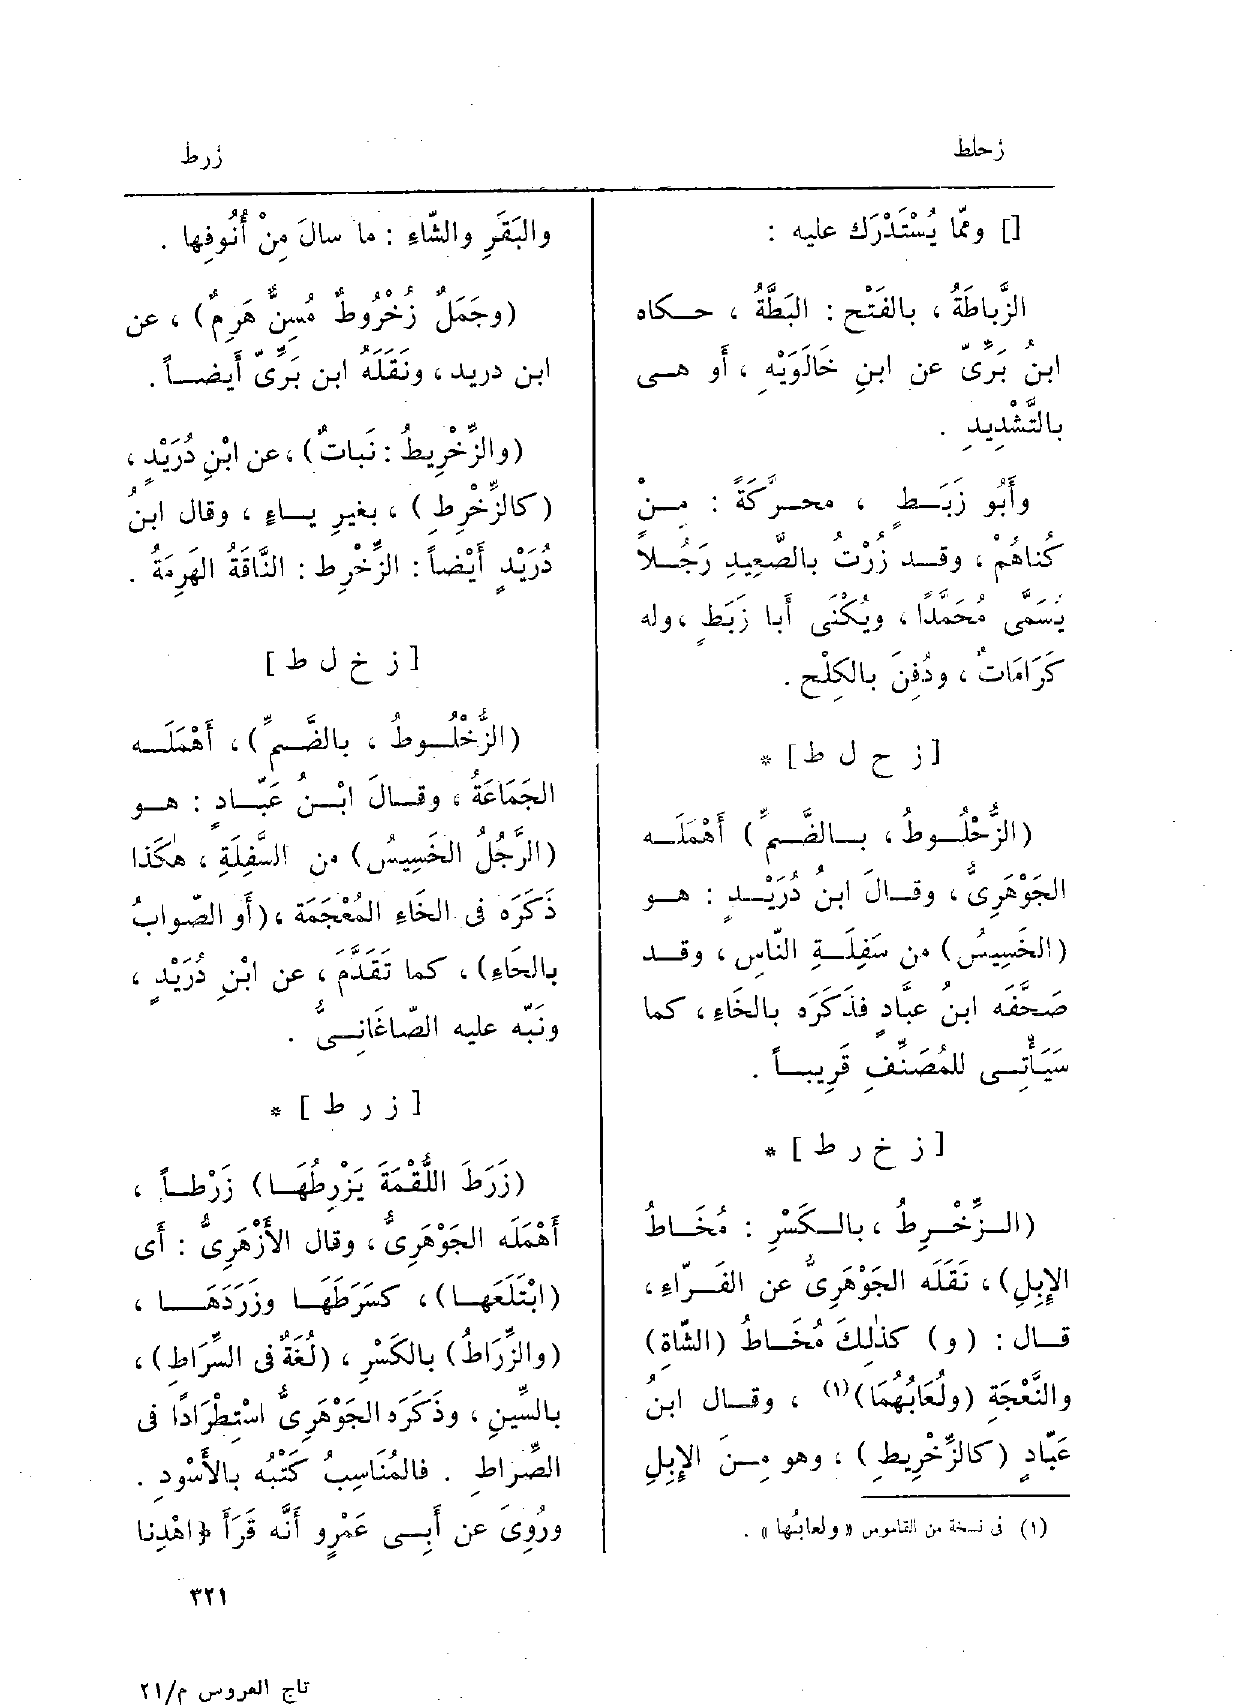 زحلط
زرط
[] وممّا يُسْتَدْرَك عليه :
الزَّباطَةُ ، بالفَتْح : البَطَّةُ ، حكاه
ابنُ بَرِّىّ عن ابنِ خَالَوَيْهِ ، أو هى
بالتَّشْدِيدِ .
وأَبُو زَبَطٍ ، محرَّكَةً : مِنْ
كُناهُمْ ، وقد زُرْتُ بالصَّعِيدِ رَجُلاً
يُسَمَّى مُحَمَّدًا ، ويُكْنَى أَبا زَبَطٍ ، وله
كَرَامَاتٌ ، ودُفِنَ بالكِلْح .
[ ز ح ل ط ] *
(الزُّحْلُوطُ ، بالضَّمِّ) أَهْمَلَه
الجَوْهَرِىُّ ، وقالَ ابنُ دُرَيْدٍ : هو
(الخَسِيسُ) من سَفِلَةِ النّاسِ ، وقد
صَحَّفَه ابنُ عبّادٍ فذَكَرَه بالخَاءِ ، كما
سَيَأْتِى للمُصَنِّفِ قَرِيباً .
[ ز خ ر ط ] *
(الزِّخْرِطُ ، بالكَسْرِ : مُخَاطُ
الإِبِلِ) ، نَقَلَه الجَوْهَرِىُّ عن الفَرّاءِ ،
قال : (و) كذٰلِكَ مُخَاطُ (الشَّاةِ)
والنَّعْجَةِ (ولُعَابُهُمَا)(١) ، وقال ابنُ
عَبّادٍ (كالزِّخْرِيطِ) ، وهو مِنَ الإِبِلِ
(١) فى نسخة من القاموس «ولعابُها» .
والبَقَرِ والشَّاءِ : ما سالَ مِنْ أُنُوفِها .
(وجَمَلٌ زُخْرُوطٌ مُسِنٌّ هَرِمٌ) ، عن
ابن دريد ، ونَقَلَهُ ابن بَرِّىّ أَيضاً .
(والزِّخْرِيطُ : نَباتٌ) ، عن ابْنِ دُرَيْدٍ ،
(كالزِّخْرِطِ) ، بغيرِ ياءٍ ، وقال ابنُ
دُرَيْدٍ أَيْضاً : الزِّخْرِط : النَّاقَةُ الهَرِمَةُ .
[ ز خ ل ط ]
(الزُّخْلُوطُ ، بالضَّمِّ) ، أَهْمَلَه
الجَمَاعَةُ ، وقالَ ابْنُ عَبّادٍ : هو
(الرَّجُلُ الخَسِيسُ) من السَّفِلَةِ ، هٰكَذا
ذَكَرَه فى الخَاءِ المُعْجَمَة ، (أَو الصّوابُ
بالحَاءِ) ، كما تَقَدَّمَ ، عن ابْنِ دُرَيْدٍ ،
ونَبَّه عليه الصّاغَانِىُّ .
[ ز ر ط ] *
(زَرَطَ اللُّقْمَةَ يَزْرِطُهَا) زَرْطاً ،
أَهْمَلَه الجَوْهَرِىُّ ، وقال الأَزْهَرِىُّ : أَى
(ابْتَلَعَها) ، كسَرَطَهَا وزَرَدَهَا ،
(والزِّرَاطُ) بالكَسْرِ ، (لُغَةٌ فى السِّرَاطِ) ،
بالسِّينِ ، وذَكَرَه الجَوْهَرِىُّ اسْتِطْرَادًا فى
الصِّراطِ . فالمُنَاسِبُ كَتْبُه بالأَسْودِ .
ورُوِىَ عن أَبِى عَمْرٍو أَنَّه قَرَأَ ﴿اهْدِنا
٣٢١
تاج العروس م/٢١